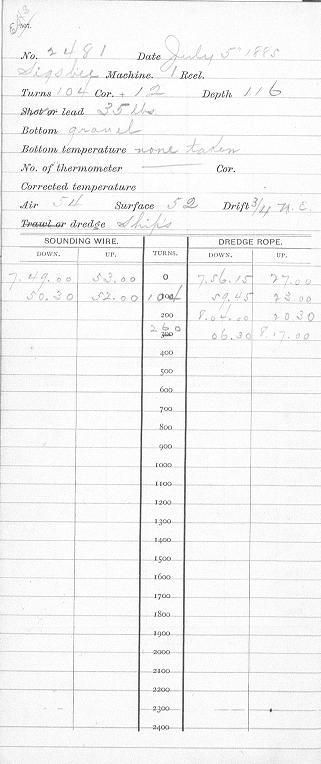 No. 2481 Date July 5" 1885
Sigsbee Machine. 1 Reel.
Turns 104 Cor. + 12 Depth 116
Shot or lead 35 lbs.
Bottom gravel
Bottom temperature none taken
No. of thermometer Cor.
Corrected temperature
Air 54 Surface 52 Drift 3/4 N. E.
Trawl or dredge Ship's
SOUNDING WIRE. TURNS. DREDGE ROPE.
DOWN. UP. DOWN. UP.
7.49.00 53.00 0 7.56.15 27.00
50.30 52.00 104 59.45 23.00
200 8.04.00 20 30
260 300 06.30 8.17.00
400
500
600
700
800
900
1000
1100
1200
1300
1400
1500
1600
1700
1800
1900
2000
2100
2200
2300
2400